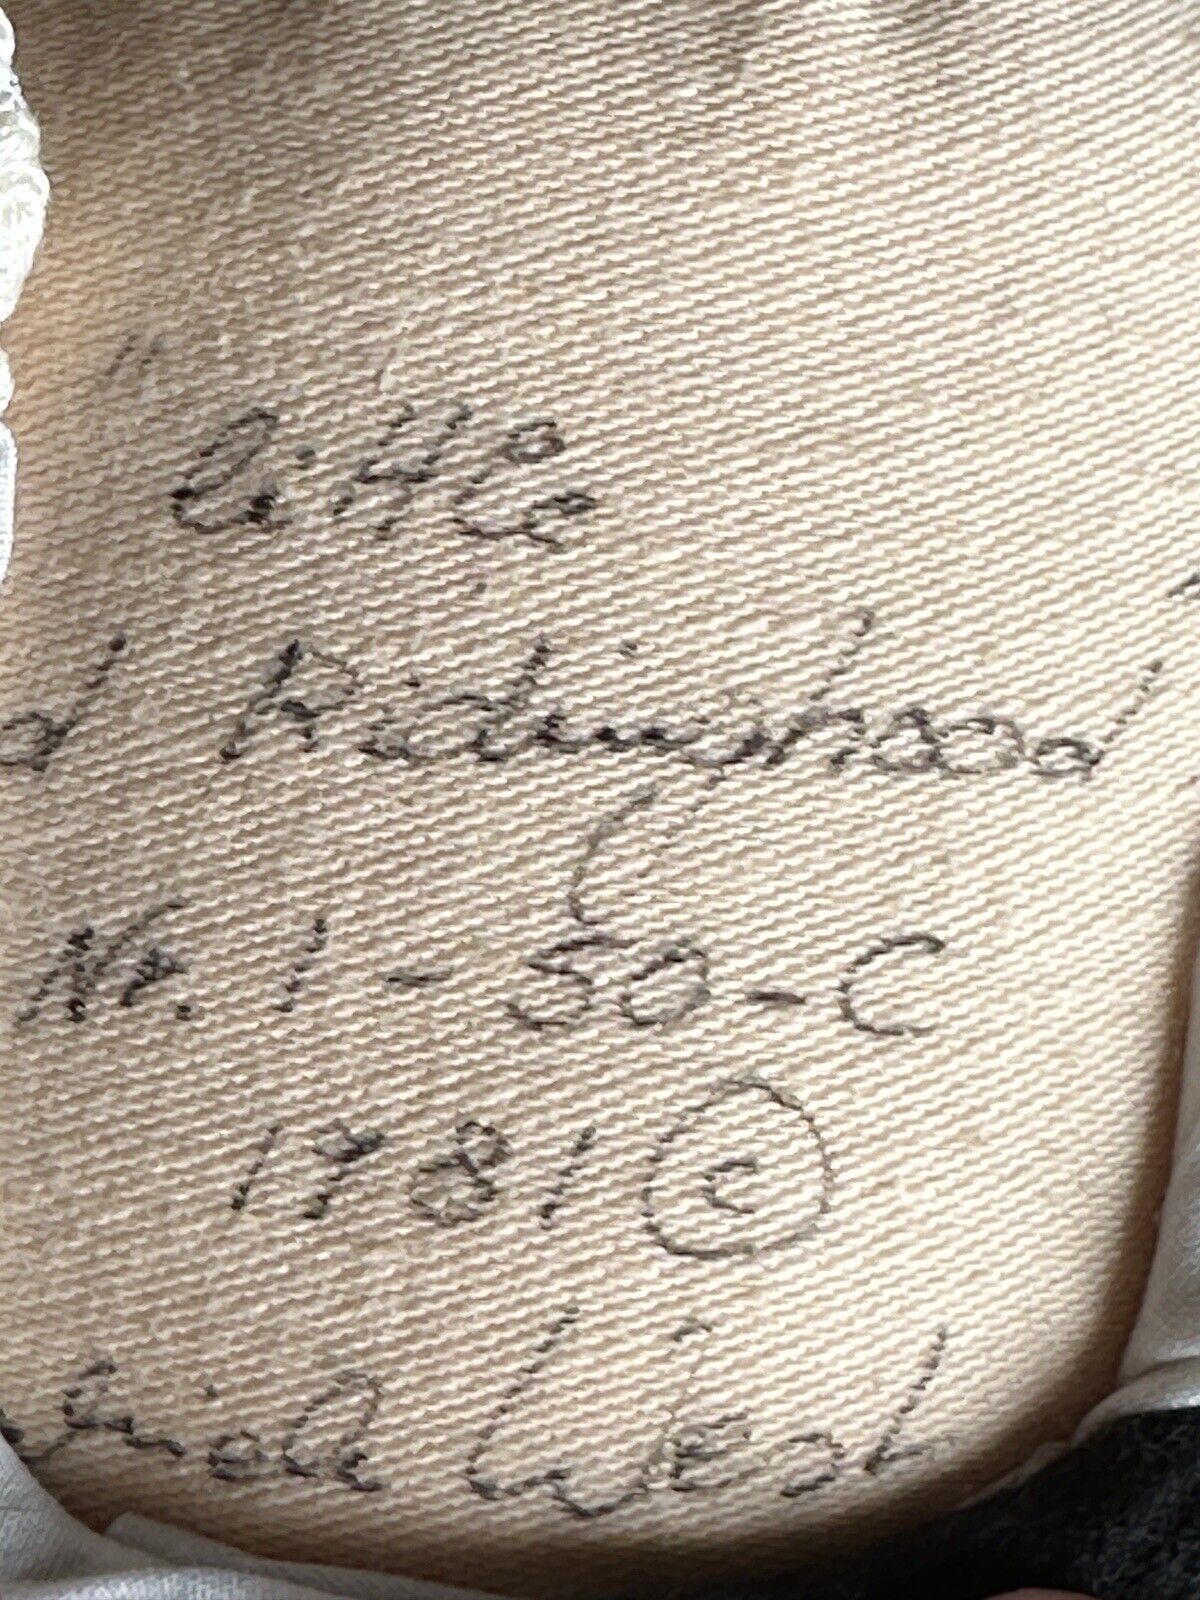 "Little
d Ridinghood"
Nr. 1-50-C
1981 ©
West